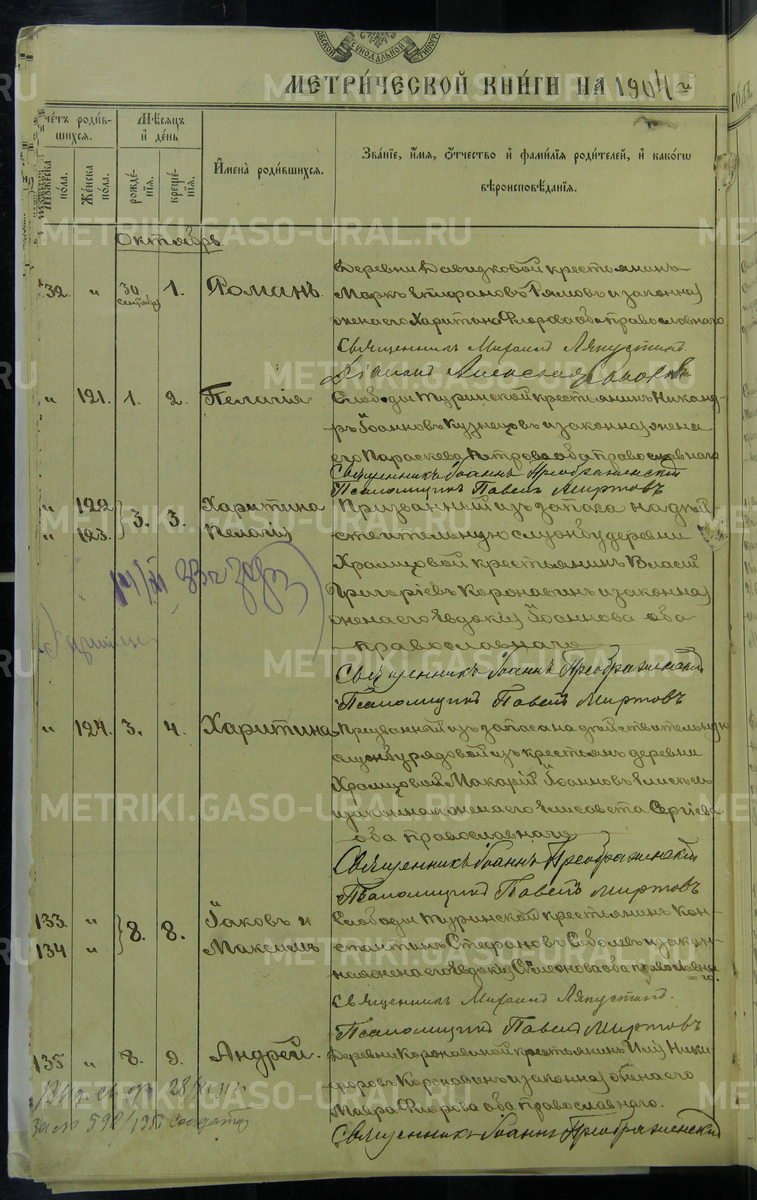 МЕТРИЧЕСКОЙ КНИГИ НА 1904 й
счетъ родив-
шихся.
Мѣсяцъ
и день
Имена родившихся.
Званіе, имя, отчество и фамилія родителей, и какого
вѣроисповѣданія.
Мужеска
пола.
Женска
пола.
рожде-
нія.
креще-
нія.
Октябрь
132. " 30 сентября 1. Романъ.
Деревни Давидковой крестьянинъ
Маркъ Епифановъ и законная
жена его Харитина Флорова оба православнаго
Священникъ Михаилъ Ляпустинъ
Діаконъ Александръ
" 121. 1. 2. Пелагія
Слободы Туринской крестьянинъ Никанд-
ръ Іоанновъ Кузнецовъ и законная жена
его Параскева Петрова оба православнаго
Священникъ Іоаннъ Преображенскій
Псаломщикъ Павелъ Миртовъ
" 122 3. 3. Харитина
" 123. Пелагія
Призванный изъ запаса на дѣй-
ствительную службу деревни
Храмцовой крестьянинъ Власій
Григорьевъ Коровинъ и законная
жена его Евдокія Іоаннова оба
православнаго
Священникъ Іоаннъ Преображенскій
Псаломщикъ Павелъ Миртовъ
" 124. 3. 4. Харитина
Призванный изъ запаса на дѣйствительную
службу рядовой изъ крестьянъ деревни
Храмцовой Макарій Іоанновъ
и законная жена его Елисавета Сергіева
оба православнаго
Священникъ Іоаннъ Преображенскій
Псаломщикъ Павелъ Миртовъ
133 " 8. 8. Іаковъ и
134 " Максимъ
Слободы Туринской крестьянинъ Кон-
стантинъ Стефановъ и закон-
ная жена его Евдокія Симеонова оба православна
го.
Священникъ Михаилъ Ляпустинъ.
Псаломщикъ Павелъ Миртовъ
135 " 8. 9. Андрей.
Деревни крестьянинъ Ники-
форовъ и законная жена его
Мавра Флорова оба православнаго.
Священникъ Іоаннъ Преображенскій
METRIKI.GASO-URAL.RU